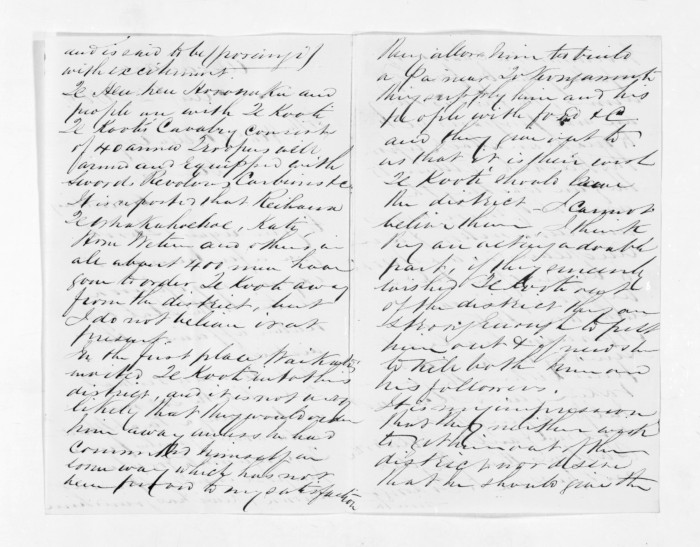 and is said to be foaming
with excitement.
Te Heu heu Horonuku and
people are with Te Kooti
Te Kooti's Cavalry consists
of 40 armed Troopers well
armed and Equipped with
Swords Revolvers, Carbines &c.
It is reported that Reihana
Te Whakahoehoe, Katy
and others, in
all about 400 men have
gone to order Te Kooti away
from the district, but
I do not believe it at
present.
In the first place Waikato
invited Te Kooti into this
district, and it is not very
likely that they would order
him away unless he had
committed himself in
some way which has not
been proved to my satisfaction
They allow him to build
a Pa near
they supply him and his
people with food &c
and they give out to
us that it is their wish
Te Kooti should leave
the district — I cannot
believe them, I think
they are acting a double
part, if they sincerely
wished Te Kooti out
of the district they are
strong enough to put
him out & if need be
to kill both him and
his followers.
It is my impression
that they neither wish
to get him out of the
district nor desire
that he should give the